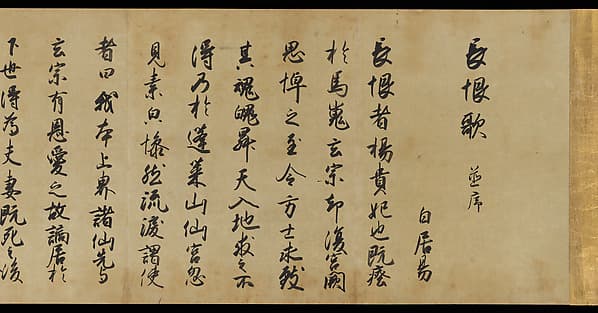 長恨歌 並序
白居易
長恨者楊貴妃也既瘞
於馬嵬玄宗却復宮闕
思悼之至令方士求致
其魂魄昇天入地求之不
得乃於蓬萊山仙宮忽
見素白慘然流淚謂使
者曰我本上界諸仙先與
玄宗有恩愛之故謫居於
下世得為夫妻既死之後